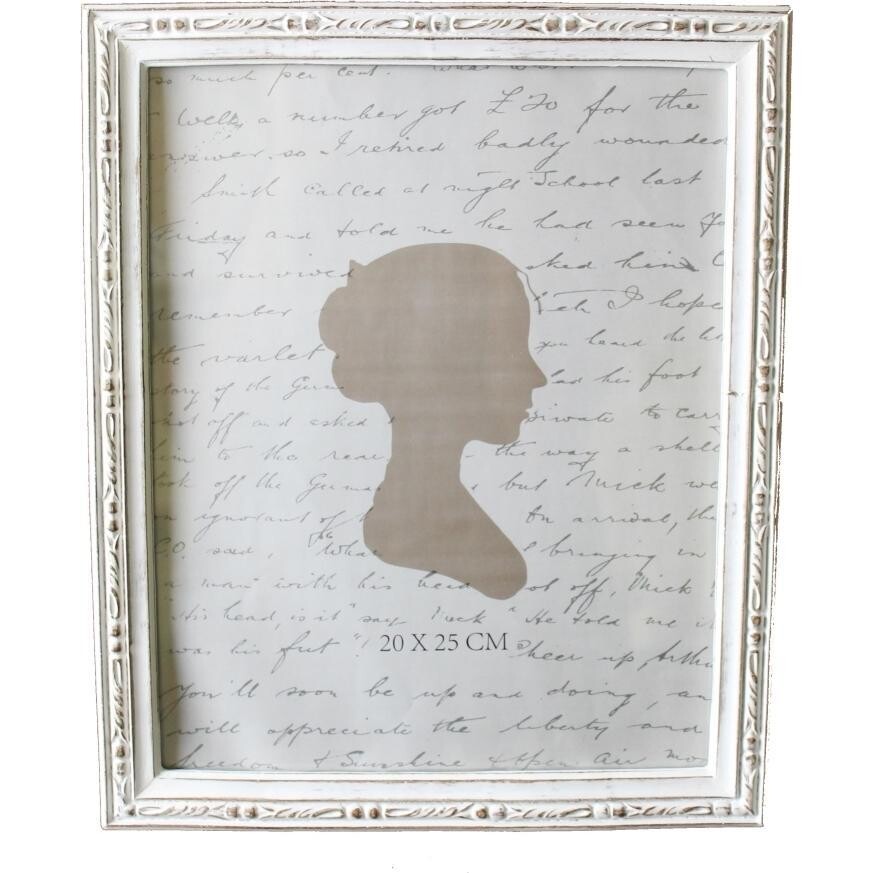 so much per cent.
Well, a number got £ 20 for the
answer. so I retired badly wounded
Smith called at night School last
Friday and told me he had seen
and survived sked him
remember I hope
the varlet you heard the
story of the had his foot
shot off and asked private to carry
him to the rear the way a shell
took off the but Mick
ignorant of On arrival, the
C.O. said, "What bringing in
a man with his head off, Mick
"His head, is it" say Mick "He told me it
was his feet"! Cheer up Arthu
20 X 25 CM
You'll soon be up and doing, an
will appreciate the liberty and
freedom & Sunshine & Open Air